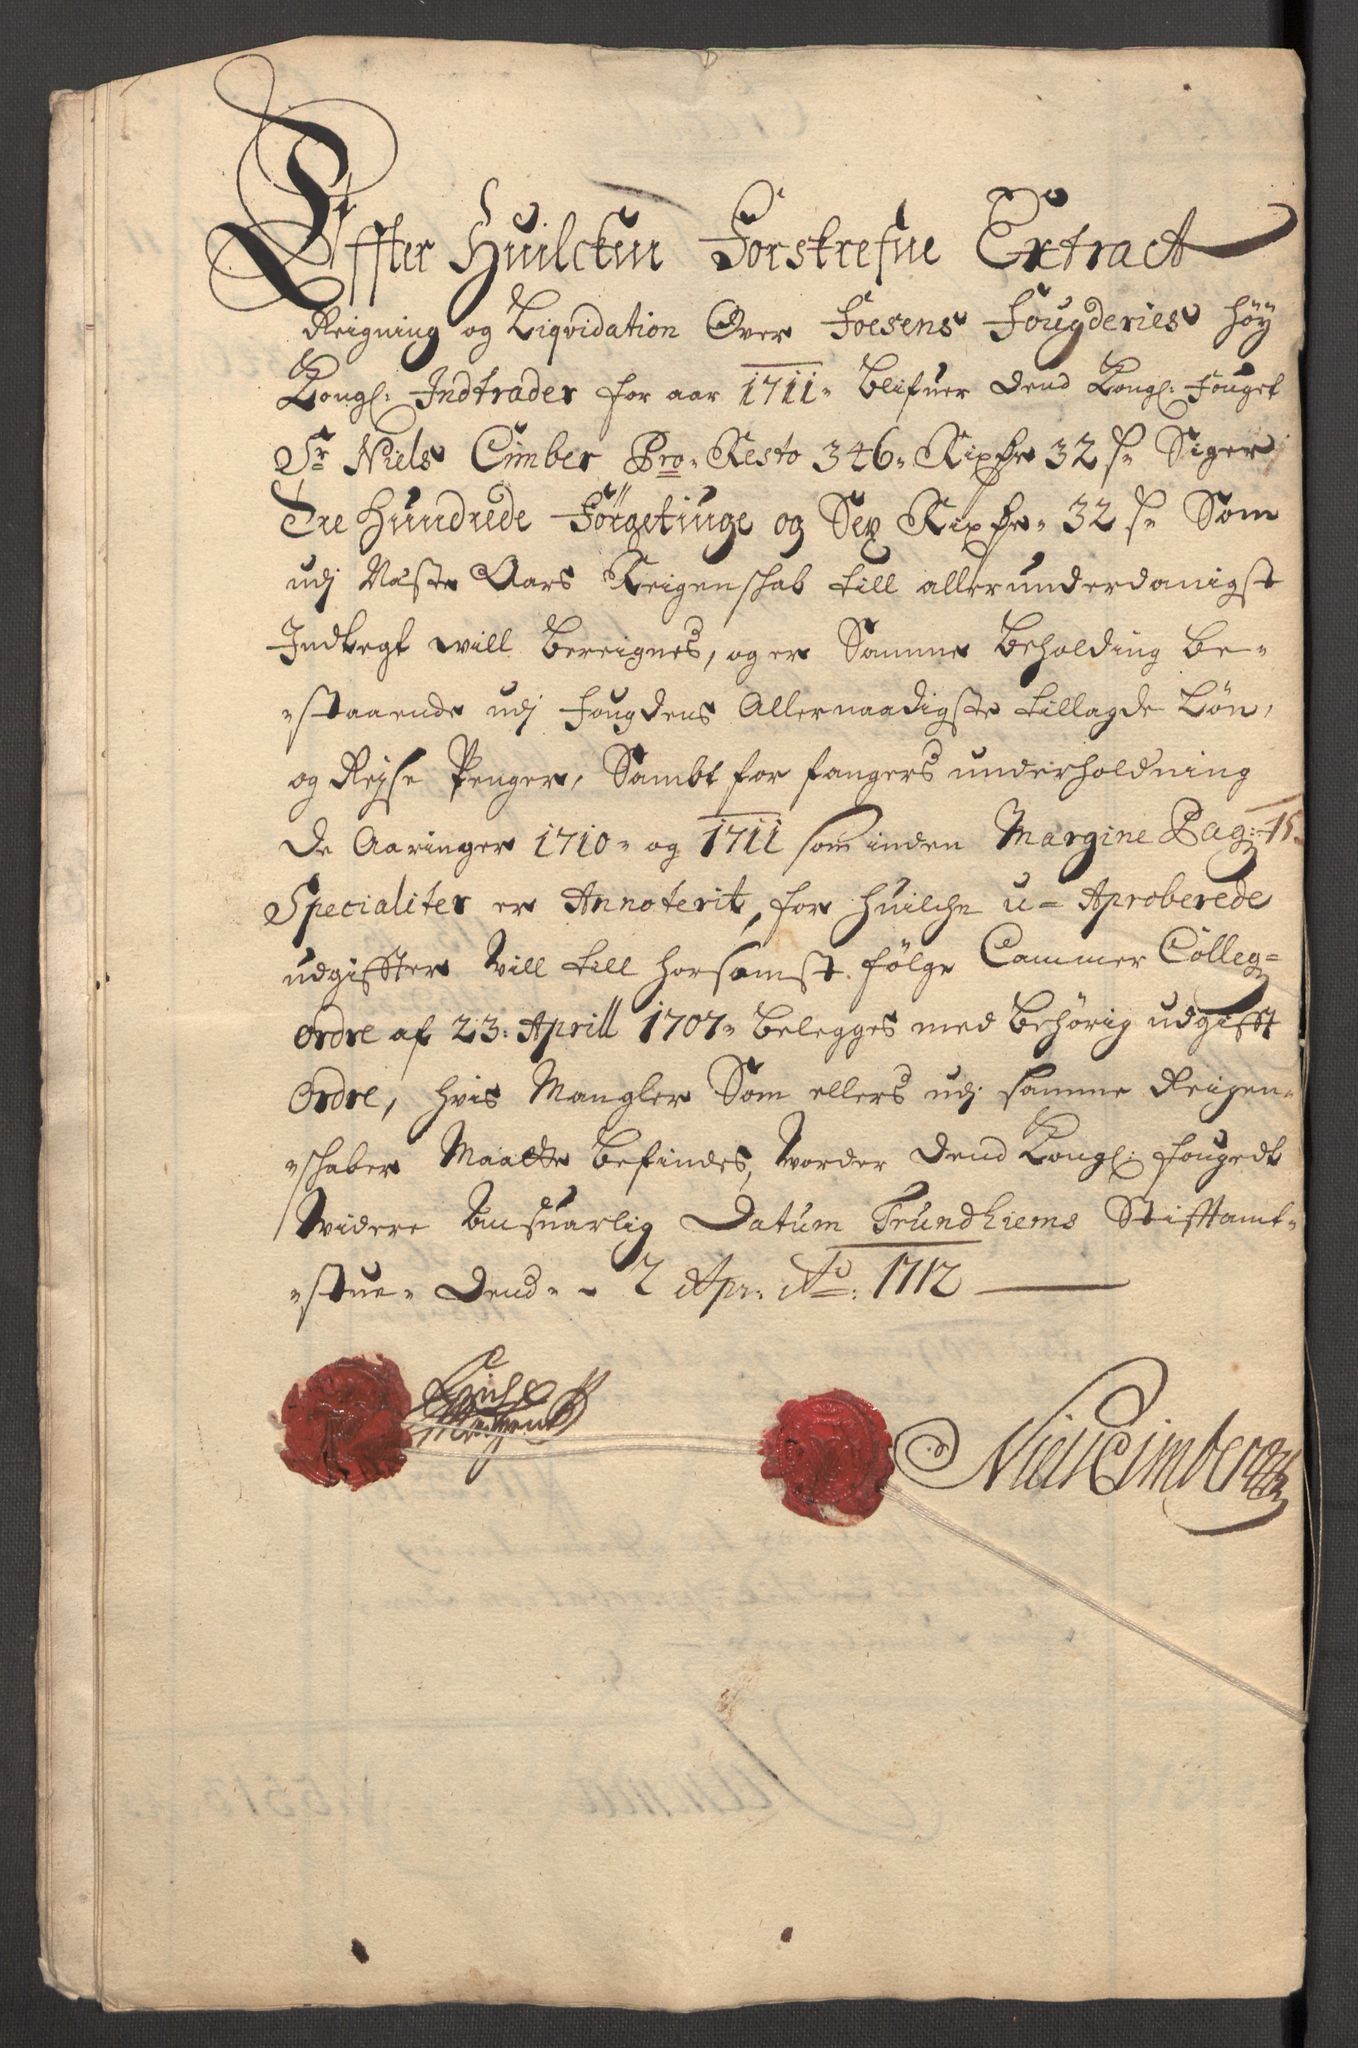 Effter Huilcken Forskrefne Extract
Reigning og Liqvidation Over Foesens Fougderies høy
Kongl: Indtrader for aar 1711„ blifuer dend Kongl: Fouget
Sr Niels Cimber Pro„ Resto 346„ Rixdr 32 s„ Siger
Tre Hundrede Förgetiuge og Sex Rixdr„ 32 s„ Som
udj Næste Aars Reigenschab till allerunderdanigst
Indtegt will bereignes, og er Samme beholding be„
„staaende udj fougdens Allernaadigste tillagde Løn,
og Rejse Penger, Sambt for fangers underholdning
de Aaringer 1710„ og 1711 som inden Margine Pag: 15
Specialiter er Annoterit, for huilche u= Aproberede
udgiffter Vill till horsomst følge Cammer Colleg=
ordre af 23: Aprill 1707„ belegges med behørig udgifft
Ordre, hvis Mangler Som ellers udj samme Reigen„
„schaber Maatte befindes, Vorder dend Kongl: fougedt
Videre Ansuarlig Datum Trundhiems Stifftamt„
„stue„ dend„ „ 2 Apr: Ao: 1712
Niels Cimber